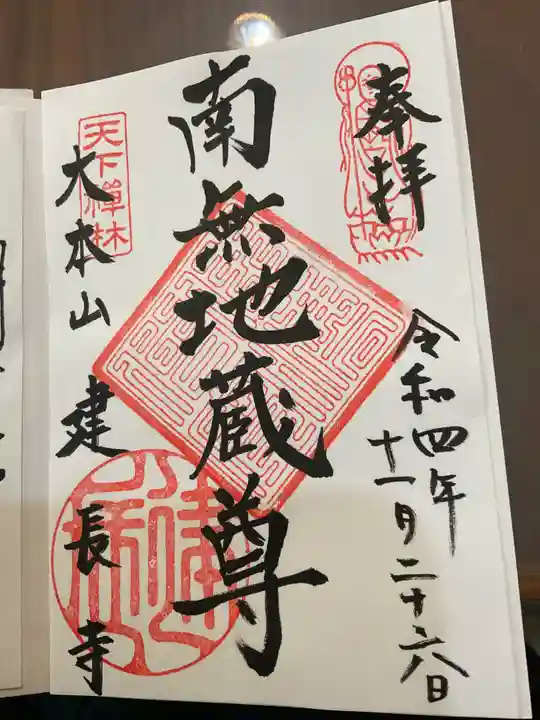 奉拝
令和四年
十一月二十六日
南無地蔵尊
天下禅林
大本山 建長寺